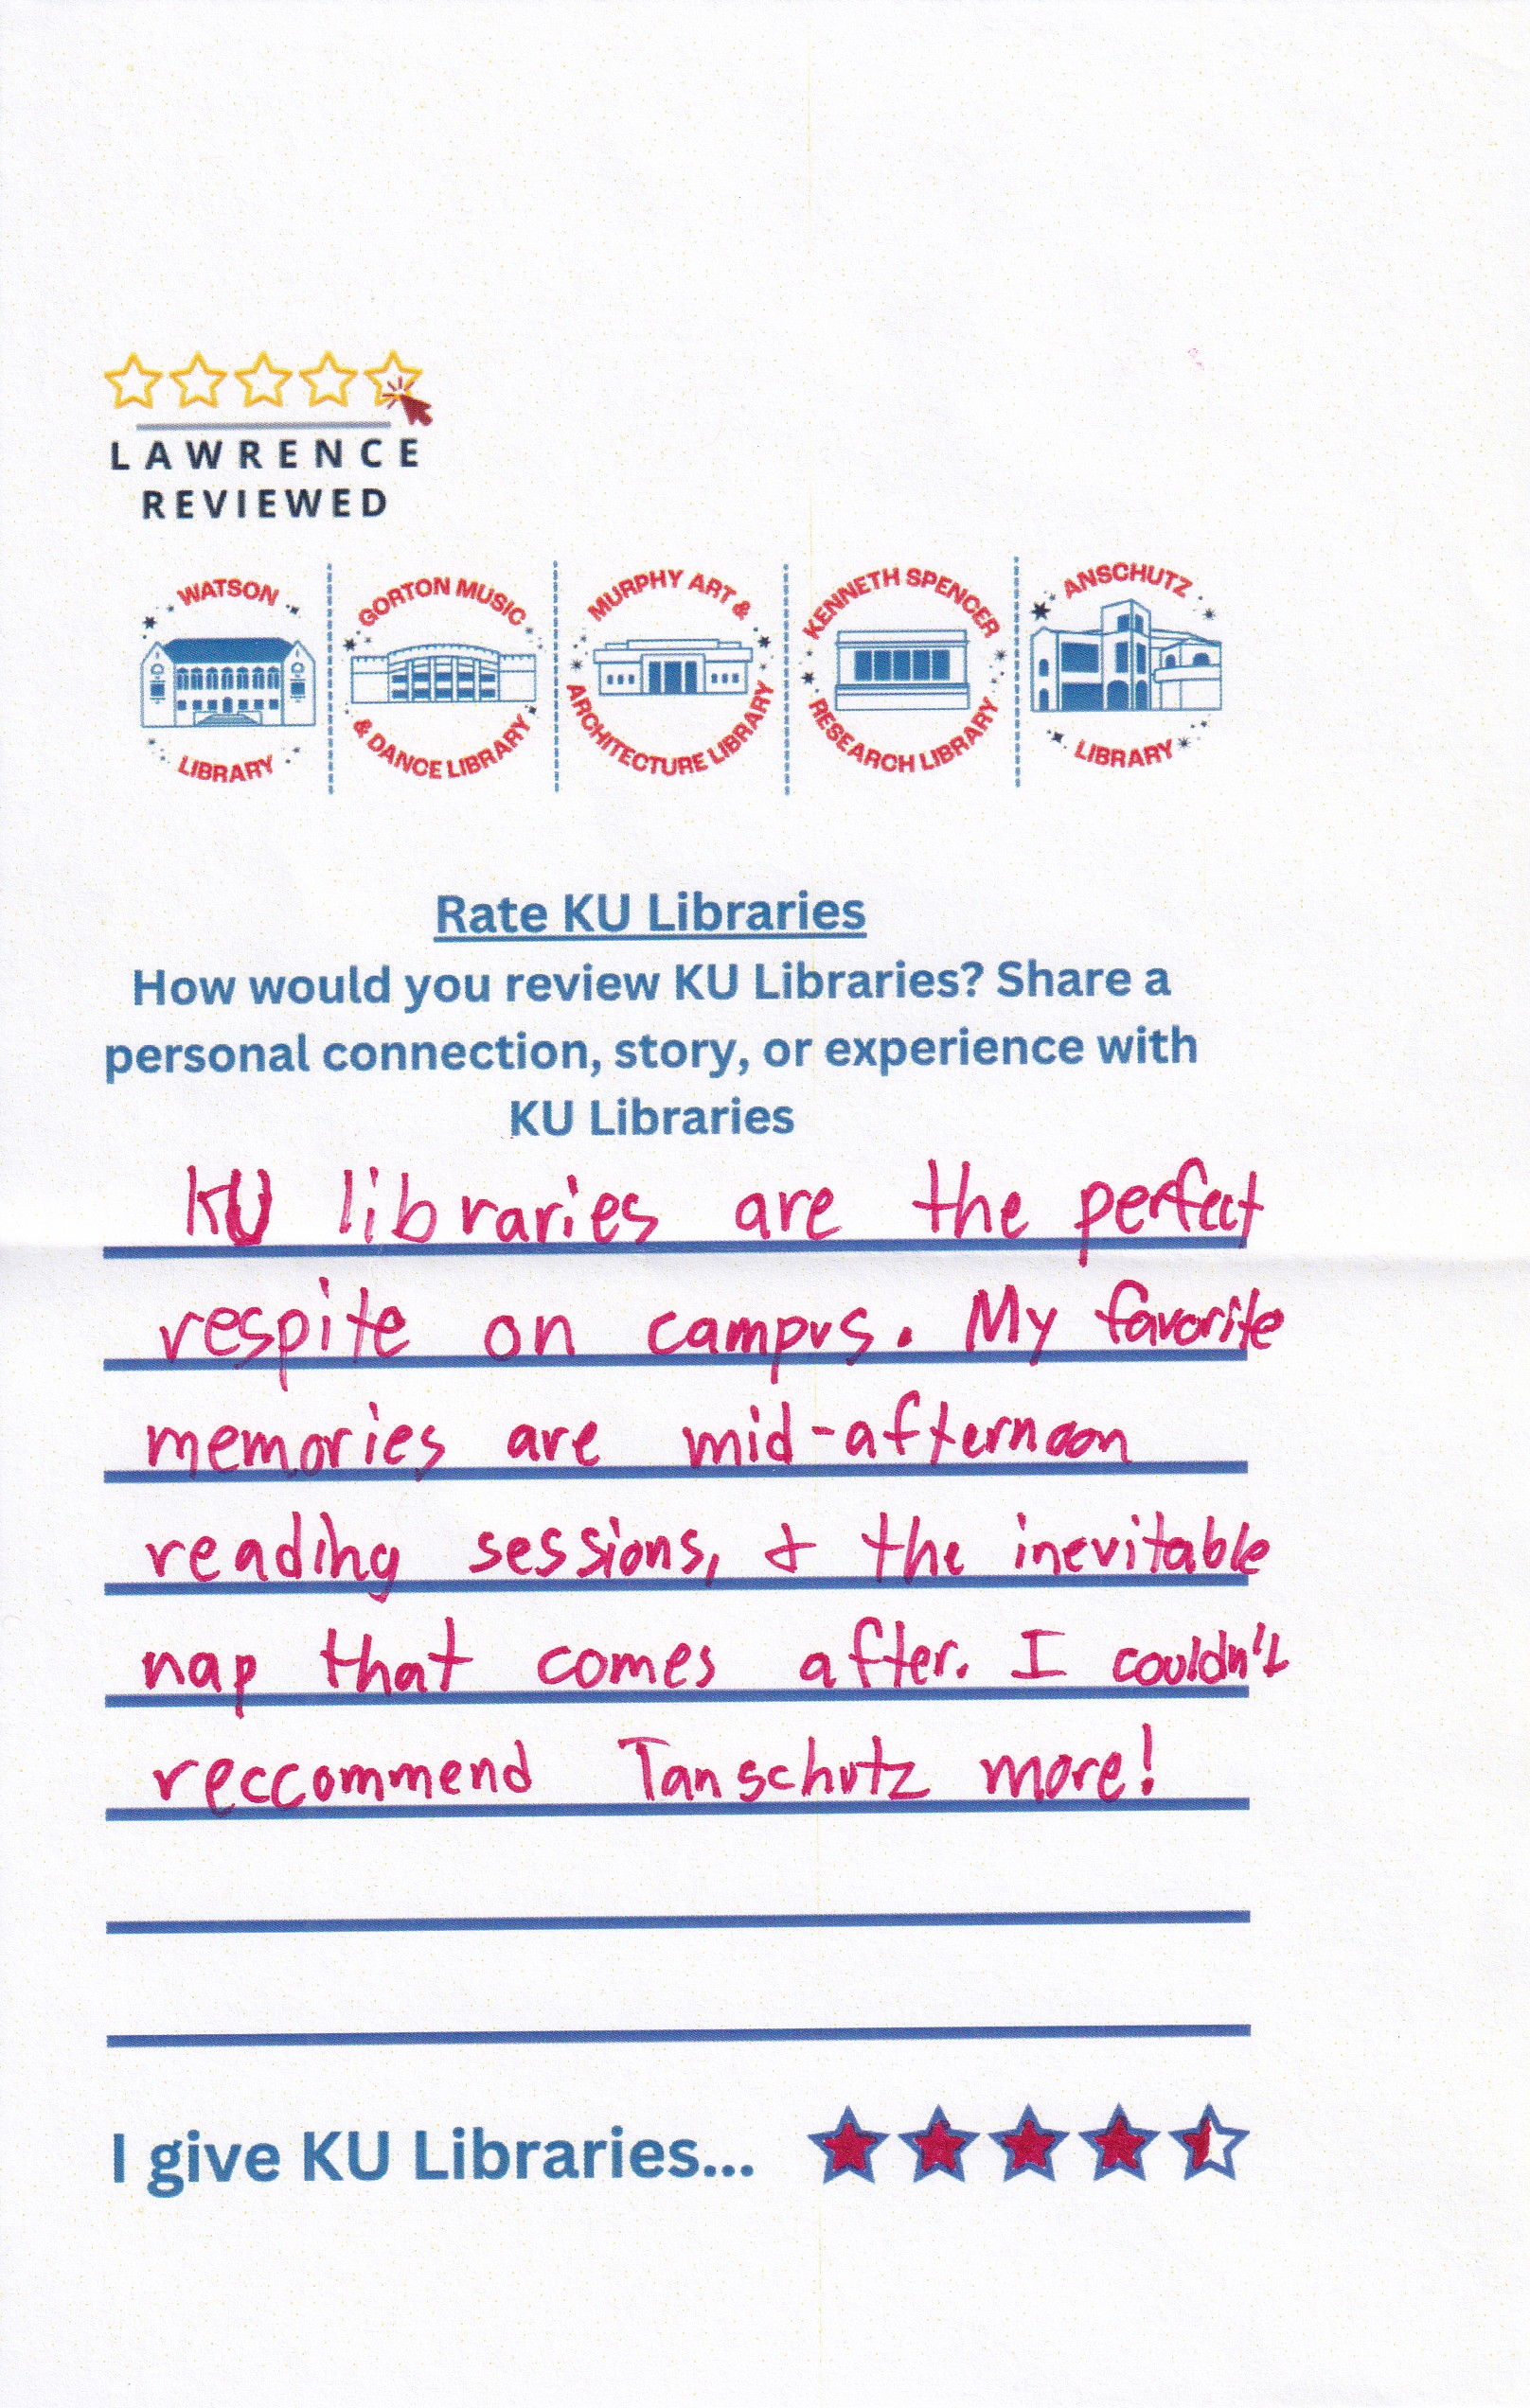 LAWRENCE
REVIEWED
WATSON
LIBRARY
GORTON MUSIC
& DANCE LIBRARY
MURPHY ART &
ARCHITECTURE LIBRARY
KENNETH SPENCER
RESEARCH LIBRARY
ANSCHUTZ
LIBRARY
Rate KU Libraries
How would you review KU Libraries? Share a
personal connection, story, or experience with
KU Libraries
KU libraries are the perfect
respite on campus. My favorite
memories are mid-afternoon
reading sessions, & the inevitable
nap that comes after. I couldn't
reccommend Tanschutz more!
I give KU Libraries...